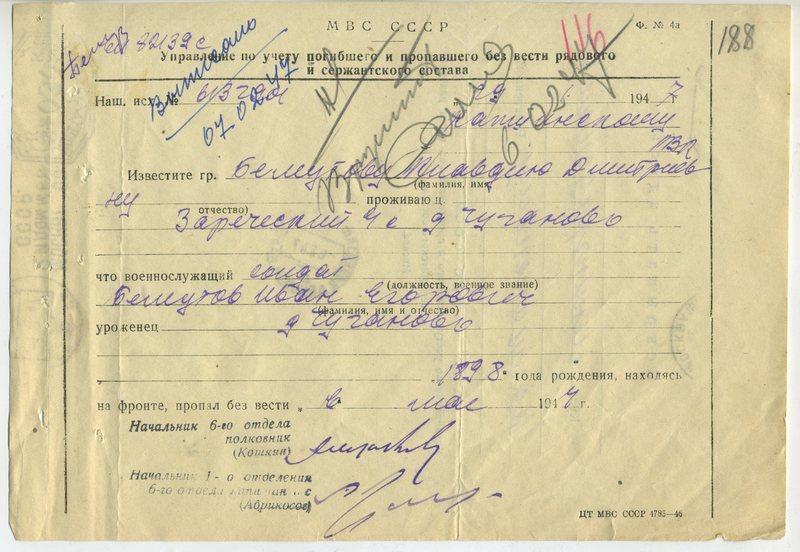 МВС СССР
Ф. № 4а
116
188
82139 с
Управление по учету погибшего и пропавшего без вести рядового
и сержантского состава
Выписано
07 02 47
Наш. исх. №
1947
6 02 47
РВК
Известите гр. Бемутову Дмитриев
(фамилия, имя,
ну
отчество)
проживающ
Зареческий с/с д Чуганово
что военнослужащий солдат
(должность, военное звание)
Бемутов Иван Егорович
(фамилия, имя и отчество)
уроженец д Чуганово
1898 года рождения, находясь
на фронте, пропал без вести в мае 1944 г.
Начальник 6-го отдела
полковник
(Кошкин)
Начальник 1-го отделения
6-го отдела капитан а/с
(Абрикосов)
ЦТ МВС СССР 4785—46